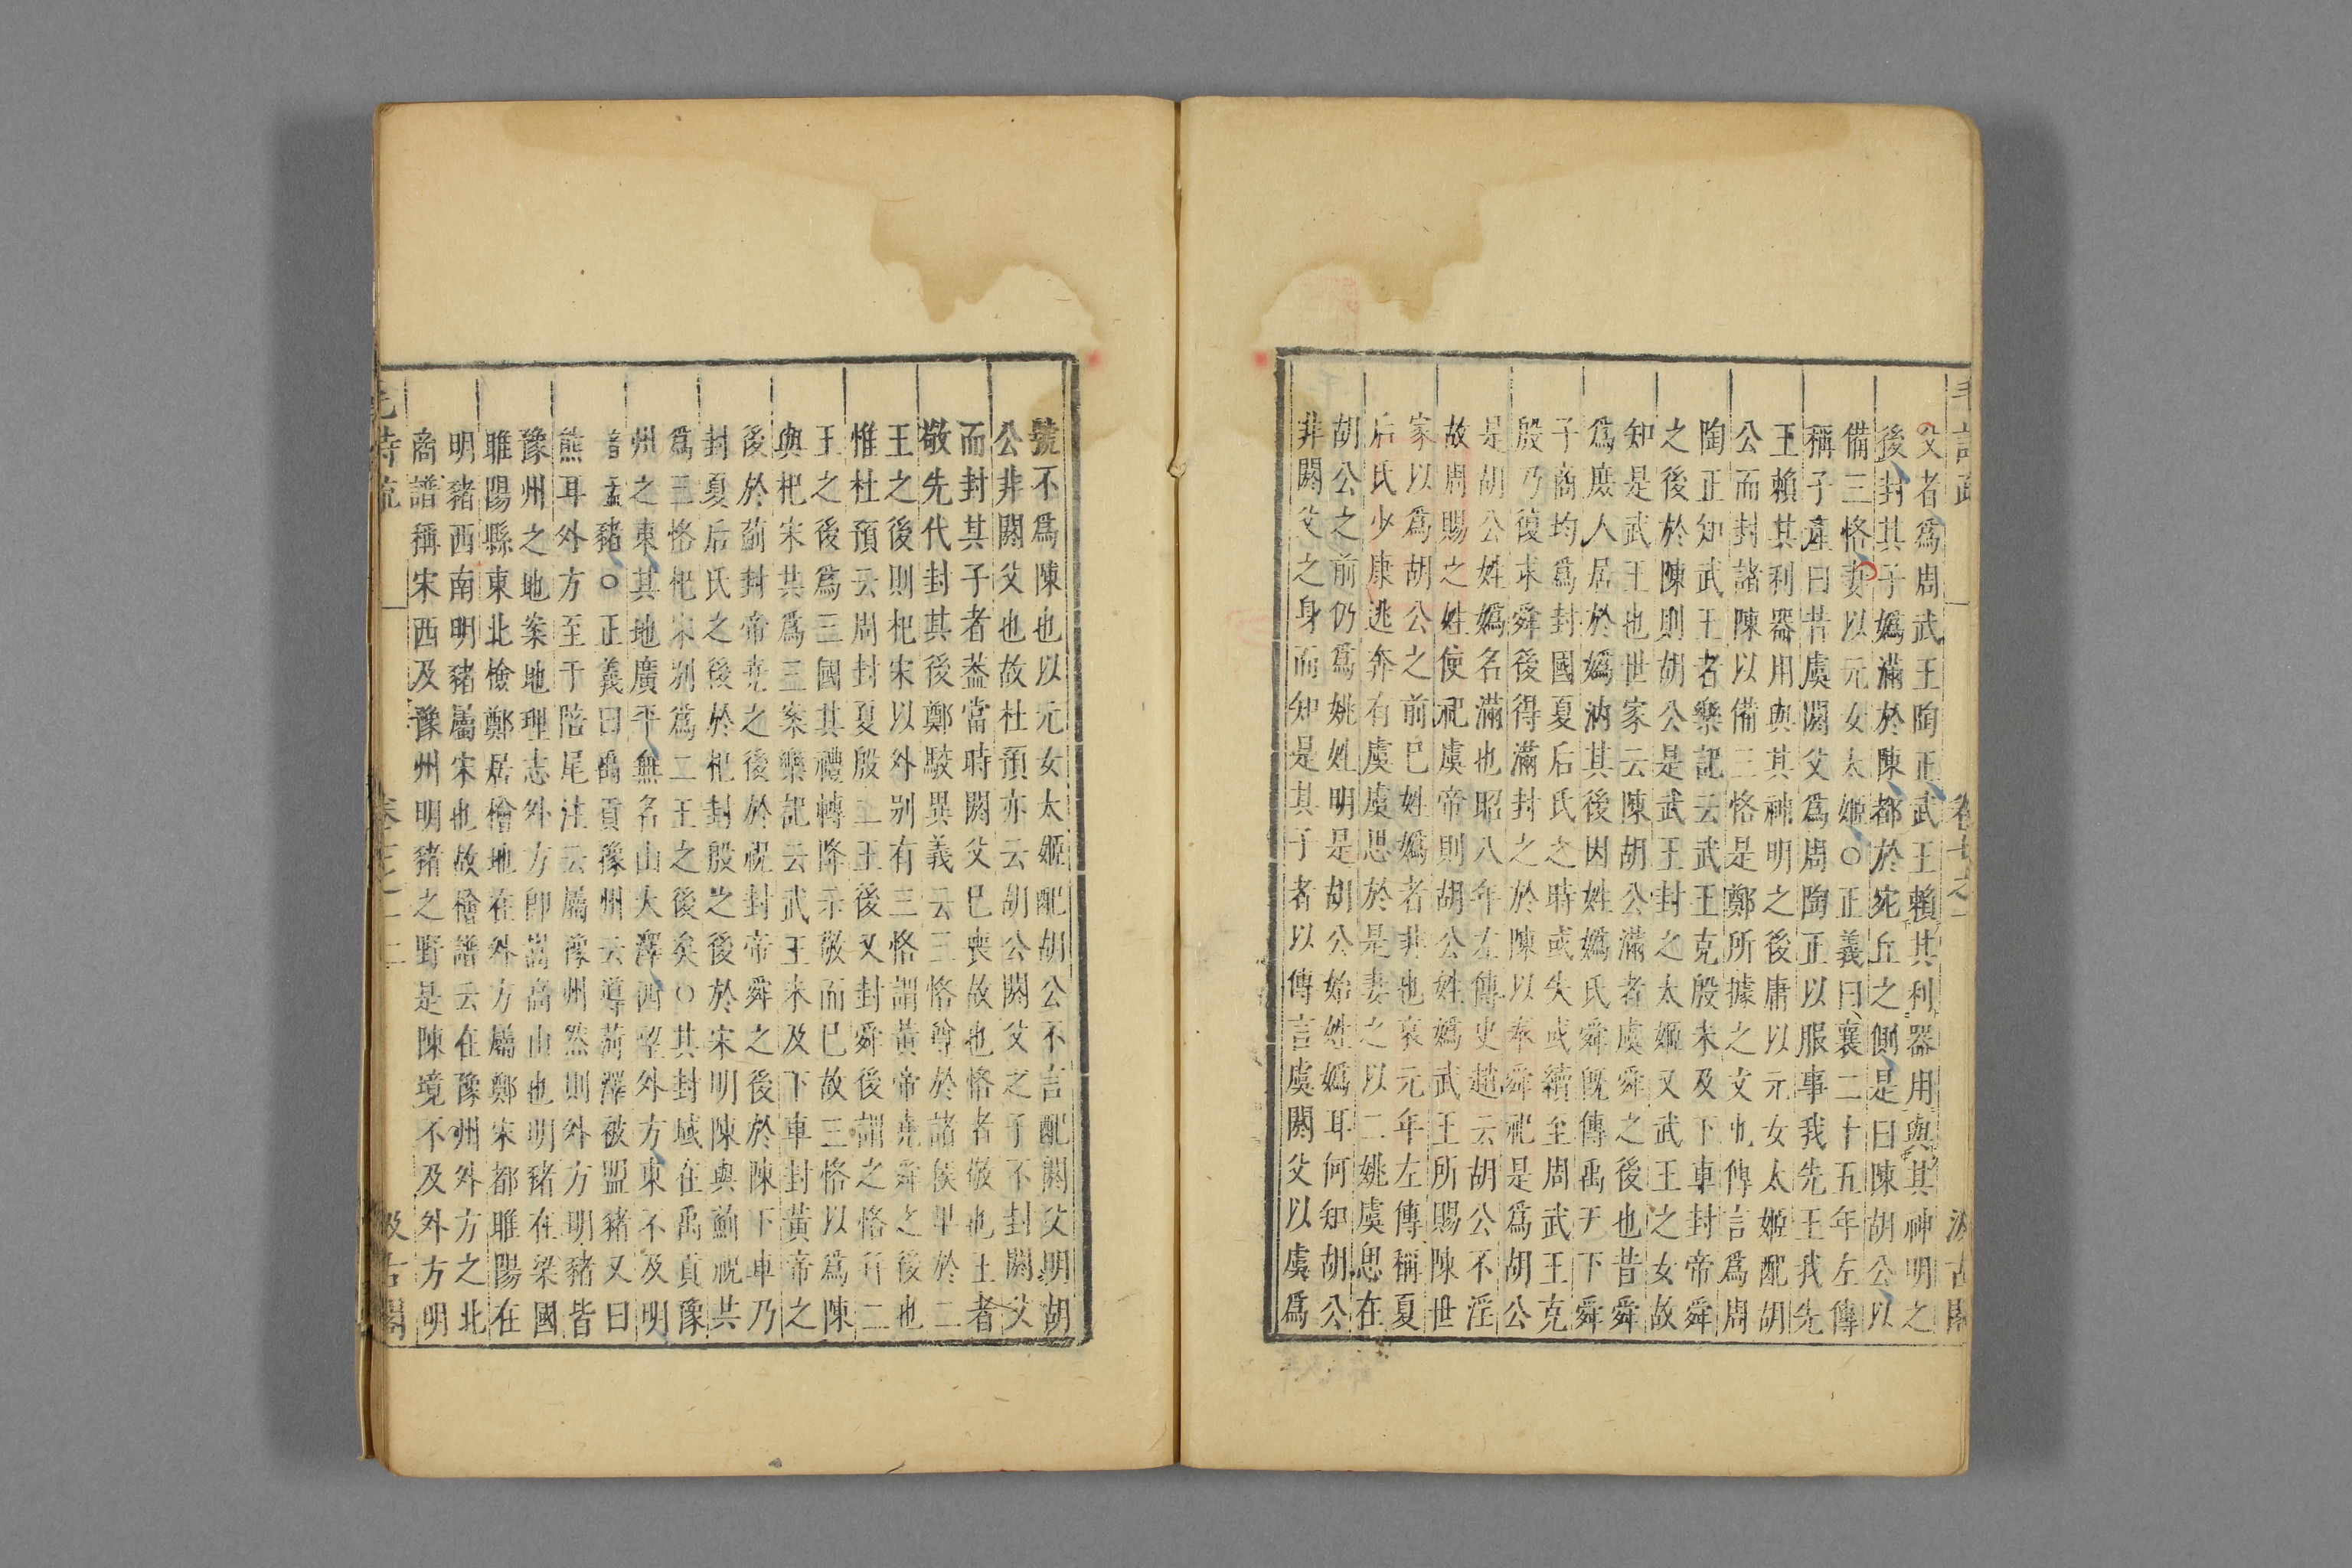 父者爲周武王陶正武王賴其利器用與其神明之
後封其子嬀滿於陳都於宛丘之側是曰陳胡公以
備三恪妻以元女太姬○正義曰襄二十五年左傳
稱子產曰昔虞閼父爲周陶正以服事我先王我先
王賴其利器用與其神明之後庸以元女太姬配胡
公而封諸陳以備三恪是鄭所據之文也俾言爲周
陶正知武王者樂記云武王克殷未及下車封帝舜
之後於陳則胡公是武王封之太姬又武王之女故
知是武王也世家云陳胡公滿者虞舜之後也昔舜
爲庶人居於嬀汭其後因姓嬀氏舜旣傳禹天下舜
子商均爲封國夏后氏之時或失或續至周武王克
殷乃復求舜後得滿封之於陳以奉舜祀是爲胡公
是胡公姓嬀名滿也昭八年左傳史趙云胡公不淫
故周賜之姓使祀虞帝則胡公姓嬀武王所賜陳世
家以爲胡公之前已姓嬀者非也哀元年左傳稱夏
后氏少康逃奔有虞虞思於是妻之以二姚虞思在
胡公之前仍爲姚姓明是胡公始姓嬀耳何知胡公
非閼父之身而知是其子者以傳言虞閼父以虞爲
號不爲陳也以元女太姬配胡公不言配閼父明胡
公非閼父也故杜預亦云胡公閼父之子不封閼父
而封其子者葢當時閼父已喪故也恪者敬也王者
敬先代封其後鄭駮異義云三恪尊於諸侯卑於二
王之後則杞宋以外別有三恪謂黃帝堯舜之後也
惟杜預云周封夏殷二王後又封舜後謂之恪幷二
王之後爲三國其禮轉降示敬而已故三恪以爲陳
與杞宋共爲三案樂記云武王未及下車封黃帝之
後於薊封帝堯之後於祝封帝舜之後於陳下車乃
封夏后氏之後於杞封殷之後於宋明陳與薊祝共
爲三恪杞宋別爲二王之後矣○其封域在禹貢豫
州之東其地廣平無名山大澤西望外方東不及明
豬音孟豬○正義曰禹貢豫州云導菏澤被盟豬又曰
熊耳外方至于陪尾注云屬豫州然則外方明豬皆
豫州之地案地理志外方卽嵩高山也明豬在梁國
睢陽縣東北檢鄭居檜地在外方屬鄭宋都睢陽在
明豬西南明豬屬宋也故檜譜云在豫州外方之北
商譜稱宋西及豫州明豬之野是陳境不及外方明